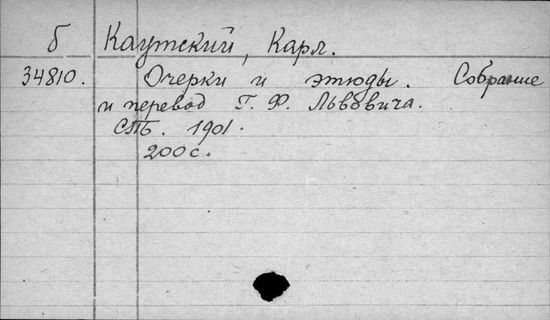 б Каутский, Карл.
34810. Очерки и этюды. Собрание
и перевод Г. Ф. Львовича.
СПБ. 1901.
200 с.